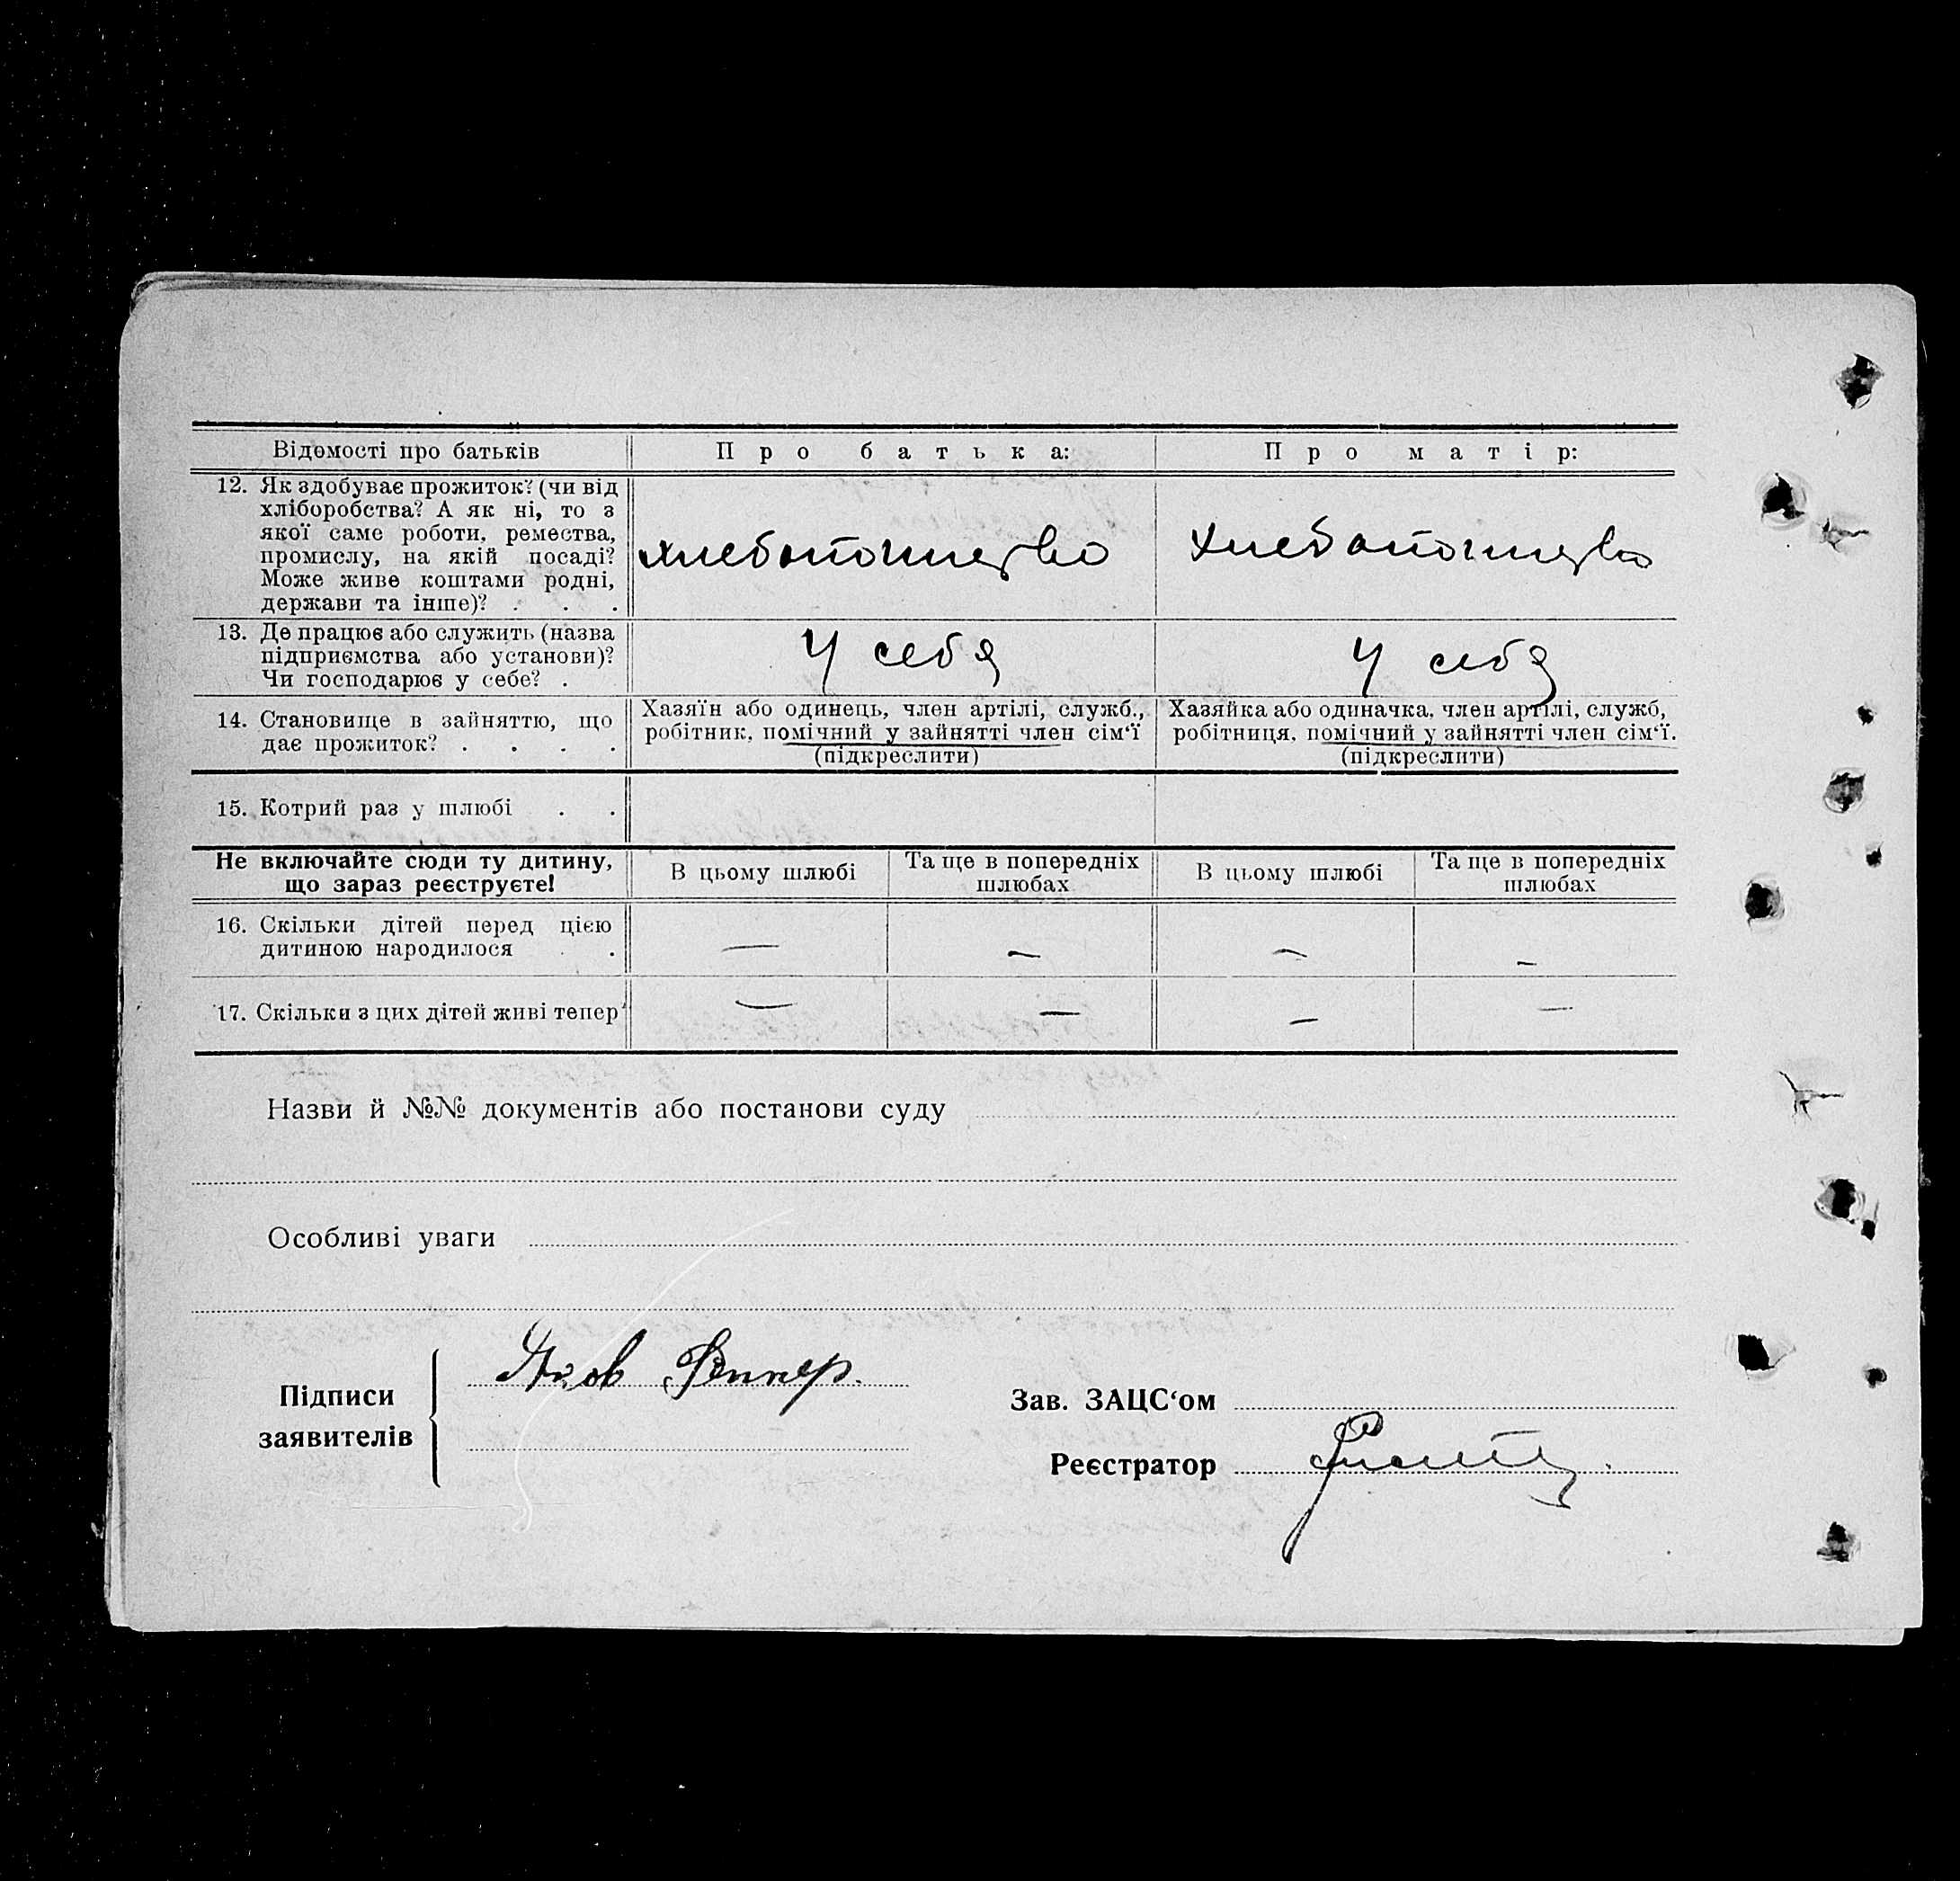 Відомості про батьків
Про батька:
Про матір:
12. Як здобуває прожиток? (чи від
хліборобства? А як ні, то з
якої саме роботи, ремества,
промислу, на якій посаді?
Може живе коштами родні,
держави та інше)? . . .
хлебопашество
хлебопашество
13. Де працює або служить (назва
підприємства або установи)?
Чи господарює у себе? .
У себя
У себя
14. Становище в зайняттю, що
дає прожиток? . . . .
Хазяїн або одинець, член артілі, служб.,
робітник, помічний у зайнятті член сім‘ї
(підкреслити)
Хазяйка або одиначка, член артілі, служб,
робітниця, помічний у зайнятті член сім‘ї.
(підкреслити)
15. Котрий раз у шлюбі . .
Не включайте сюди ту дитину,
що зараз реєструєте!
В цьому шлюбі
Та ще в попередніх
шлюбах
В цьому шлюбі
Та ще в попередніх
шлюбах
16. Скільки дітей перед цією
дитиною народилося .
— — — —
17. Скільки з цих дітей живі тепер
— — — —
Назви й №№ документів або постанови суду
Особливі уваги
Підписи
заявителів
Яков
Зав. ЗАЦС‘ом
Реєстратор